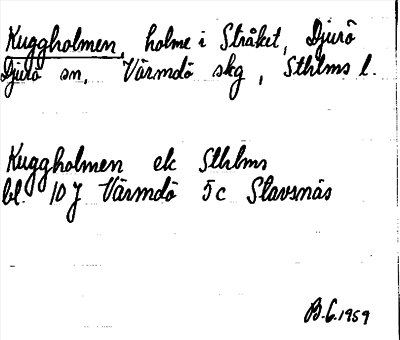 Kuggholmen, holme i Stråket, Djurö
Djurö sn, Värmdö skg, Sthlms l.
Kuggholmen ek Sthlms
bl. 10 J Värmdö 5c Stavsnäs
B.G. 1959